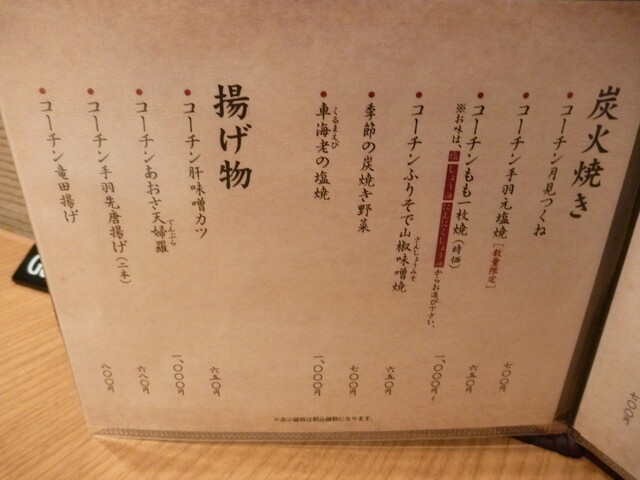 炭火焼き
・コーチン月見つくね 七〇〇円
・コーチン手羽元塩焼 [数量限定] 六五〇円
・コーチンもも一枚焼(時価) 一、〇〇〇円〜
※お味は、塩 しょうゆ にんにくしょうゆ からお選び下さい。
・コーチンふりそで山椒味噌焼 六五〇円
さんしょうみそ
・季節の炭焼き野菜 七〇〇円
・車海老の塩焼 一、〇〇〇円
くるまえび
揚げ物
・コーチン肝味噌カツ 六五〇円
・コーチンあおさ天婦羅 一、〇〇〇円
てんぷら
・コーチン手羽先唐揚げ(二本) 六八〇円
・コーチン竜田揚げ 八〇〇円
※表示価格は税込価格になります。